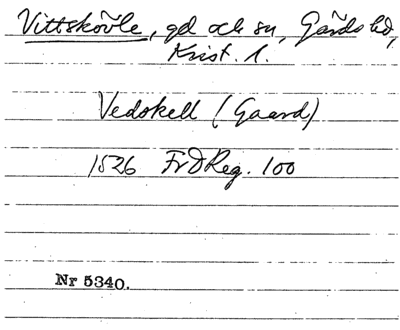 Vittskövle, gd och sn, Gärds hd,
Krist. l.
Vedskell (Gaard)
1526 FrDReg. 100
Nr 5340.